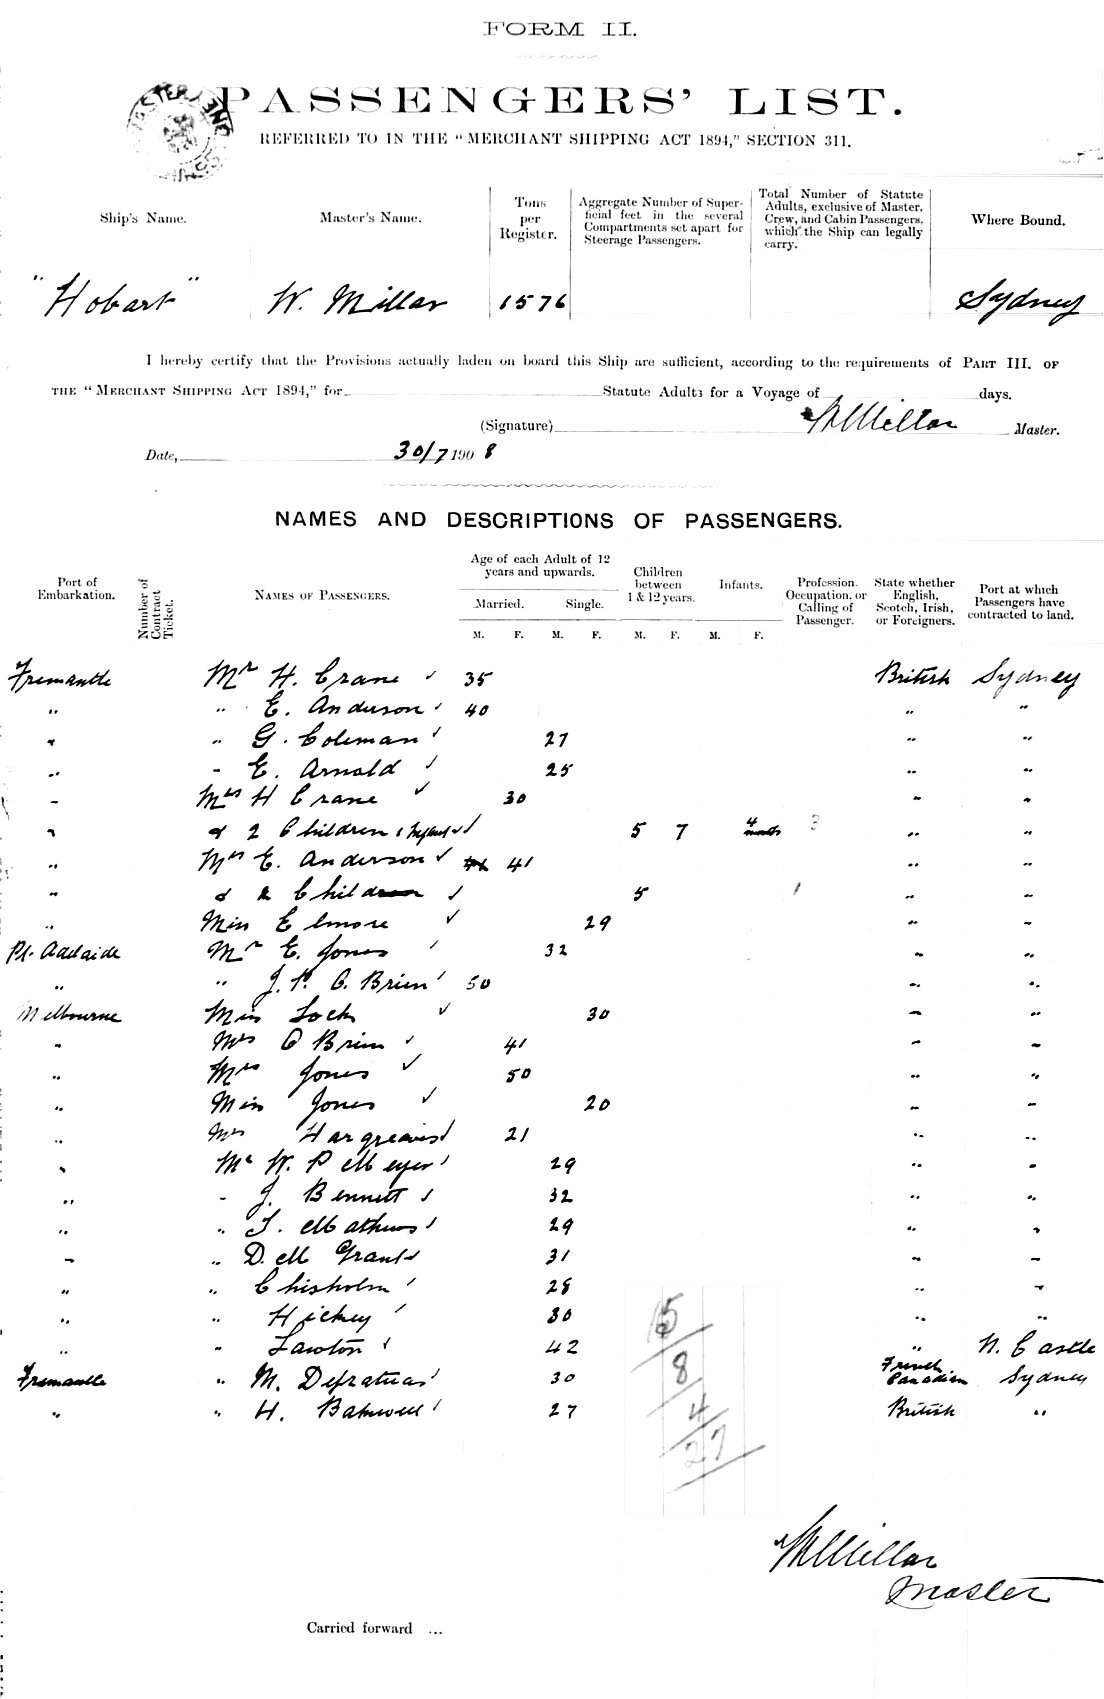 FORM II.
PASSENGERS' LIST.
REFERRED TO IN THE "MERCHANT SHIPPING ACT 1894," SECTION 311.
Ship's Name. Master's Name. Tons per Register. Aggregate Number of Superficial feet in the several Compartments set apart for Steerage Passengers. Total Number of Statute Adults, exclusive of Master, Crew, and Cabin Passengers, which the Ship can legally carry. Where Bound.
"Hobart" W. Millar 1576 Sydney
I hereby certify that the Provisions actually laden on board this Ship are sufficient, according to the requirements of PART III. OF
THE "MERCHANT SHIPPING ACT 1894," for Statute Adults for a Voyage of days.
(Signature) W Millar Master.
Date, 30/7 1908
NAMES AND DESCRIPTIONS OF PASSENGERS.
Port of Embarkation. Number of Contract Ticket. NAMES OF PASSENGERS. Age of each Adult of 12 years and upwards. Married. Single. Children between 1 & 12 years. Infants. Profession, Occupation, or Calling of Passenger. State whether English, Scotch, Irish, or Foreigners. Port at which Passengers have contracted to land.
M. F. M. F. M. F. M. F.
Fremantle Mr H. Crane 35 British Sydney
" " E. Anderson 40 " "
" " G. Coleman 27 " "
" " E. Arnold 25 " "
" Mrs H Crane 30 " "
" & 2 Children 1 Infant 5 7 4 months 3 " "
" Mrs E. Anderson 41 " "
" & Child 5 1 " "
" Miss Elmore 29 " "
Pt. Adelaide Mr E. Jones 32 " "
" " J. P. O. Brien 50 " "
Melbourne Miss Lock 30 " "
" Mrs O Brien 41 " "
" Mrs Jones 50 " "
" Miss Jones 20 " "
" Mrs Hargreaves 21 " "
" Mr W. P Meyer 29 " "
" " J. Bennett 32 " "
" " T. Mathews 29 " "
" " D. M Grant 31 " "
" " Chisholm 28 " "
" " Hickey 30 " "
" " Lawton 42 " N. Castle
Fremantle " M. 30 French Canadian Sydney
" " H. 27 British "
5
8
4
27
W Millar
Master
Carried forward ...